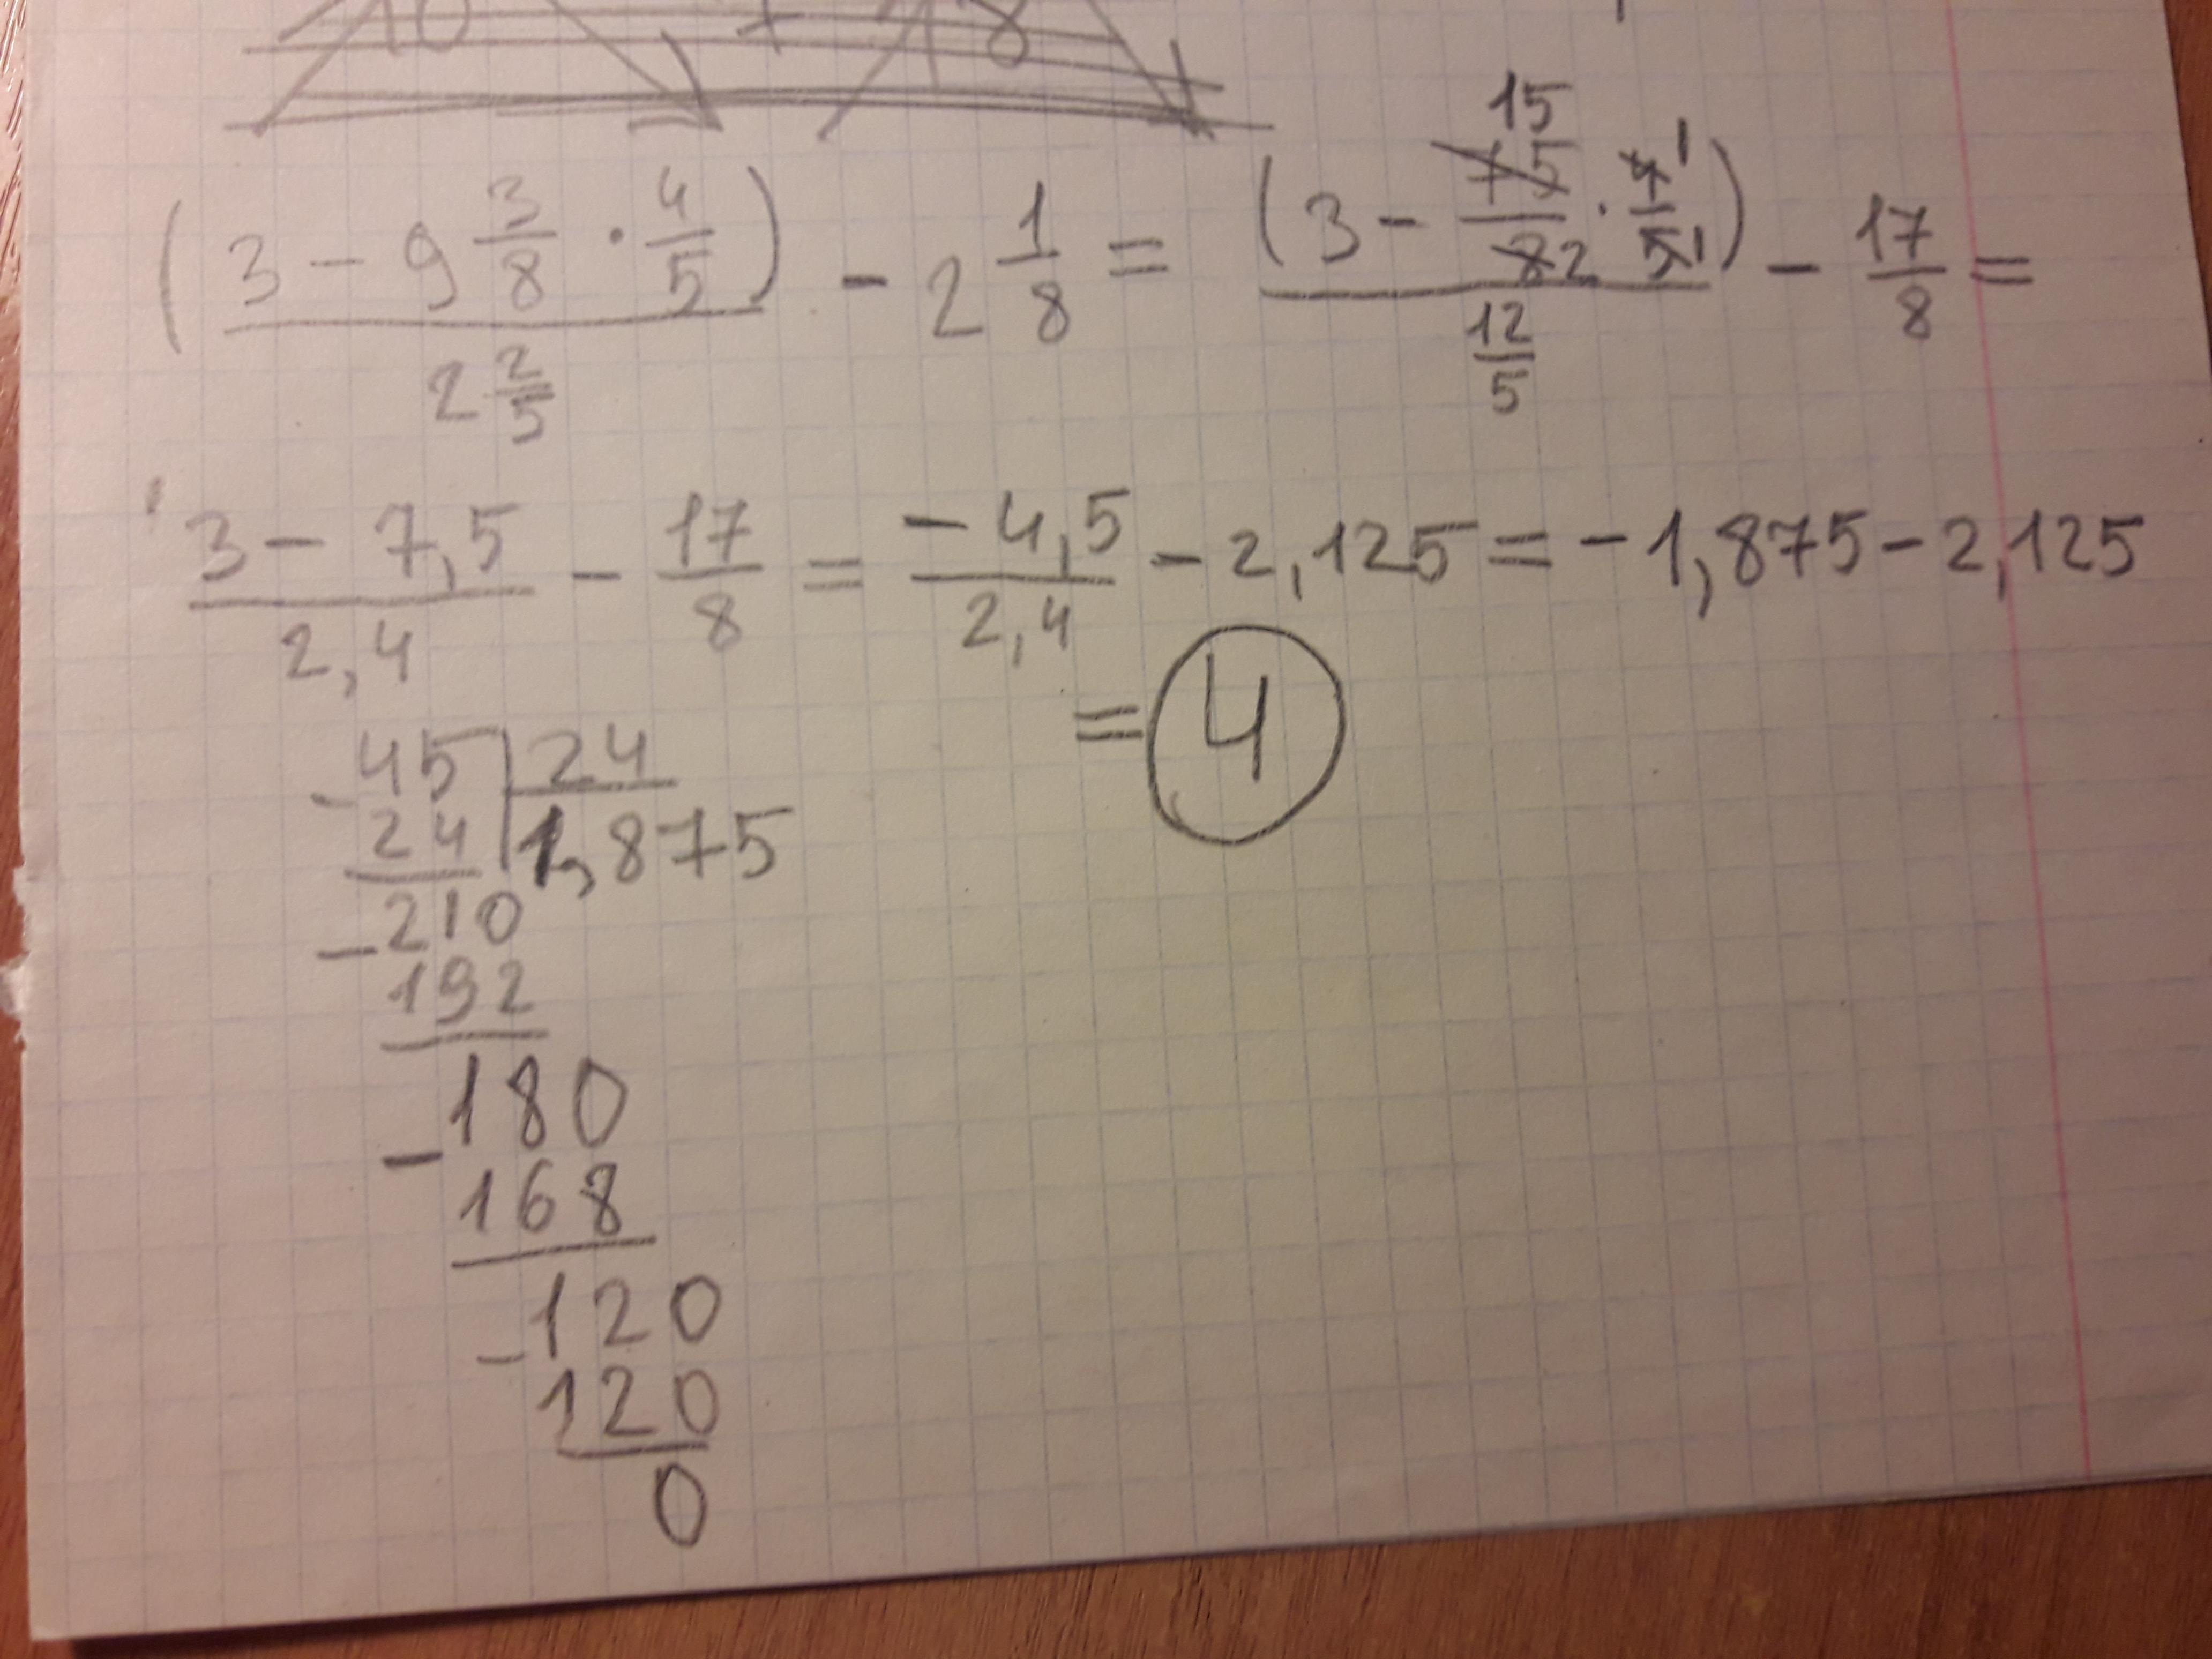 (3 - 9 3/8 · 4/5) / 2 2/5 - 2 1/8 = (3 - 75/8 2 · 4/5) / 12/5 - 17/8 =
15 1 1
3 - 7,5 / 2,4 - 17/8 = - 4,5 / 2,4 - 2,125 = - 1,875 - 2,125
= 4
- 45 | 24
24 | 1,875
- 210
192
- 180
168
- 120
120
0